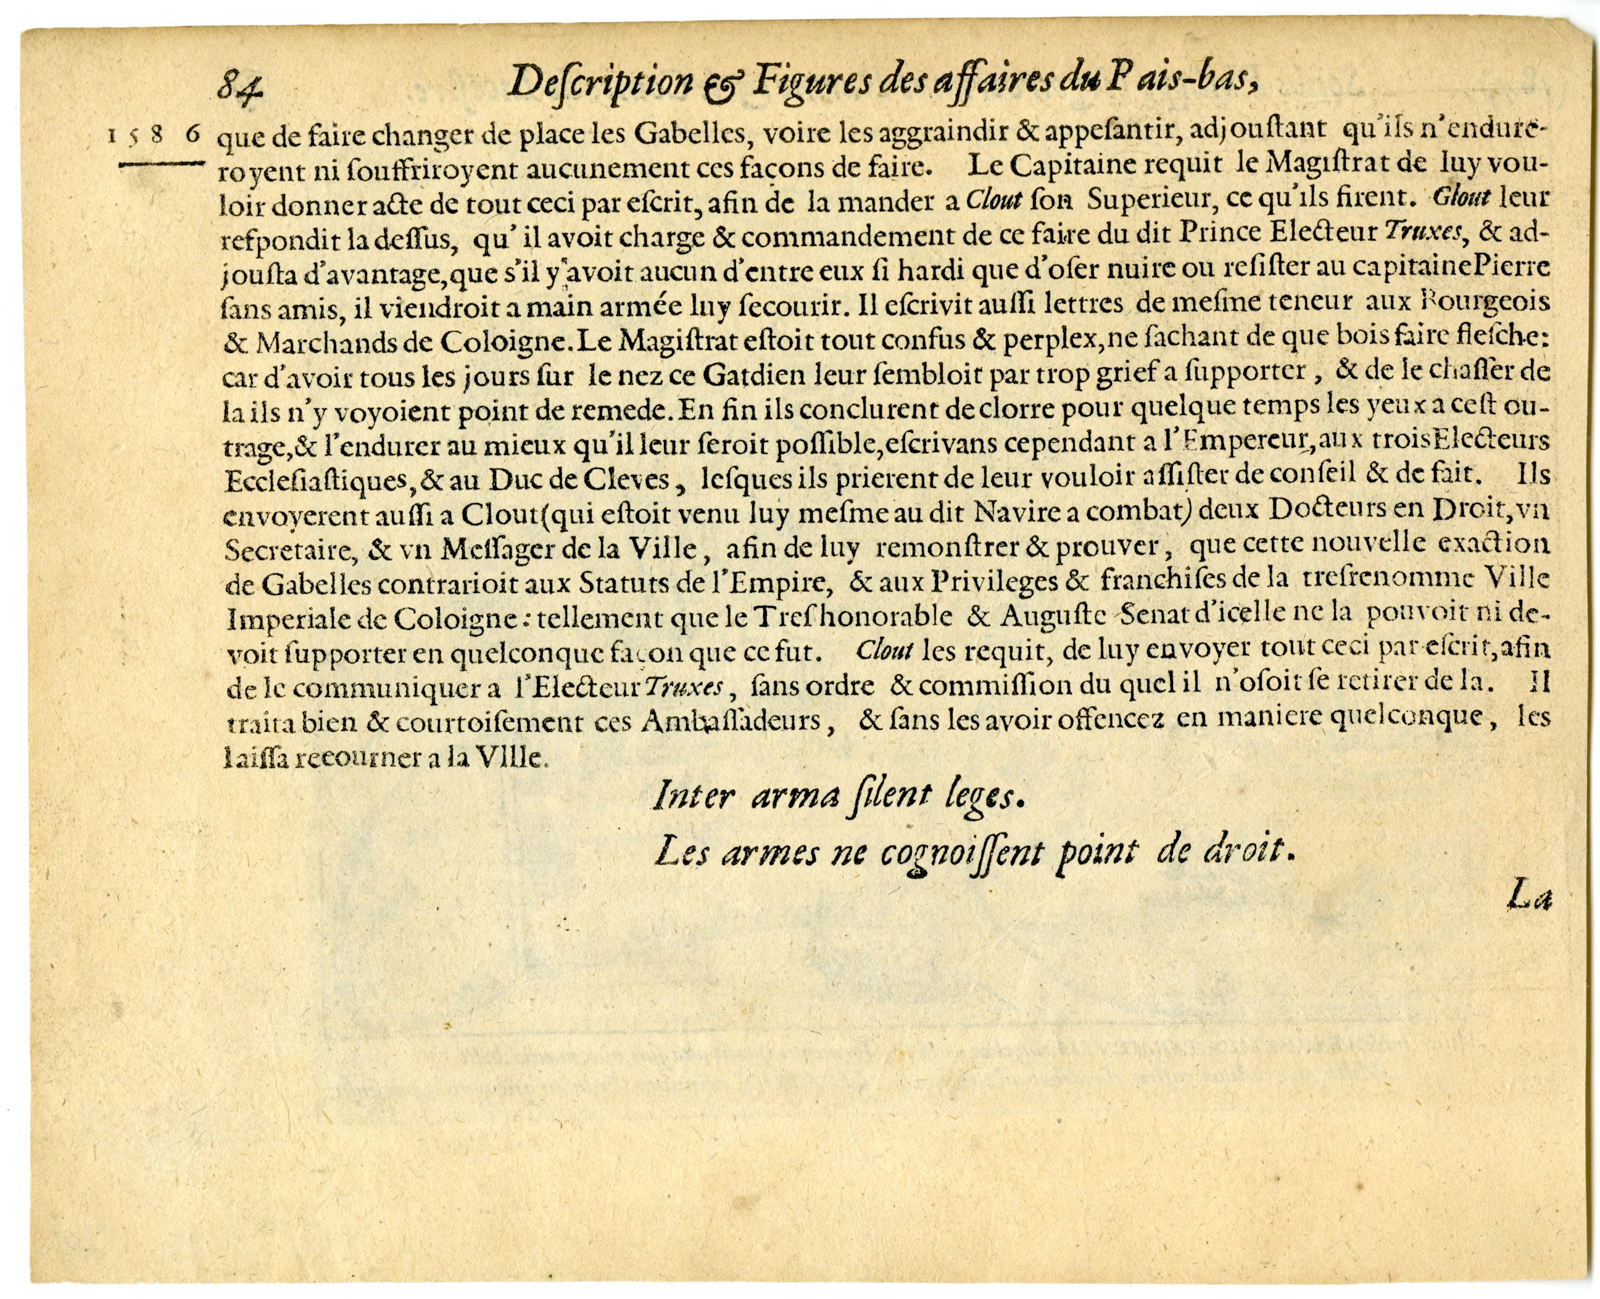 84 Deſcription & Figures des affaires du Pais-bas,
1586 que de faire changer de place les Gabelles, voire les aggraindir & appeſantir, adjouſtant qu'ils n'endure-
royent ni ſouffriroyent aucunement ces façons de faire. Le Capitaine requit le Magiſtrat de luy vou-
loir donner acte de tout ceci par eſcrit, afin de la mander a Clout ſon Superieur, ce qu'ils firent. Glout leur
reſpondit la deſſus, qu'il avoit charge & commandement de ce faire du dit Prince Electeur Truxes, & ad-
jouſta d'avantage, que s'il y avoit aucun d'entre eux ſi hardi que d'oſer nuire ou reſiſter au capitaine Pierre
ſans amis, il viendroit a main armée luy ſecourir. Il eſcrivit auſſi lettres de meſme teneur aux Bourgeois
& Marchands de Coloigne. Le Magiſtrat eſtoit tout confus & perplex, ne ſachant de que bois faire fleſche:
car d'avoir tous les jours ſur le nez ce Gatdien leur ſembloit par trop grief a ſupporter, & de le chaſſer de
la ils n'y voyoient point de remede. En fin ils conclurent de clorre pour quelque temps les yeux a ceſt ou-
trage, & l'endurer au mieux qu'il leur ſeroit poſſible, eſcrivans cependant a l'Empereur, aux trois Electeurs
Eccleſiaſtiques, & au Duc de Cleves, leſques ils prierent de leur vouloir aſſiſter de conſeil & de fait. Ils
envoyerent auſſi a Clout (qui eſtoit venu luy meſme au dit Navire a combat) deux Docteurs en Droit, vn
Secretaire, & vn Meſſager de la Ville, afin de luy remonſtrer & prouver, que cette nouvelle exaction
de Gabelles contrarioit aux Statuts de l'Empire, & aux Privileges & franchiſes de la treſrenomme Ville
Imperiale de Coloigne: tellement que le Treſhonorable & Auguſte Senat d'icelle ne la pouvoit ni de-
voit ſupporter en quelconque façon que ce fut. Clout les requit, de luy envoyer tout ceci par eſcrit, afin
de le communiquer a l'Electeur Truxes, ſans ordre & commiſſion du quel il n'oſoit ſe retirer de la. Il
traita bien & courtoiſement ces Ambaſſadeurs, & ſans les avoir offencez en maniere quelconque, les
laiſſa retourner a la VIlle.
Inter arma ſilent leges.
Les armes ne cognoiſſent point de droit.
La